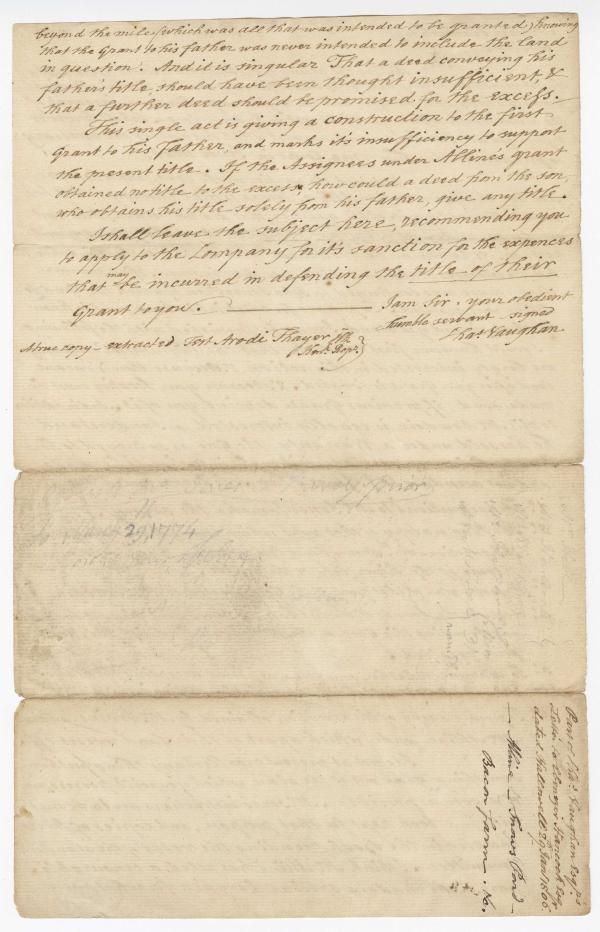 beyond the mile, (which was all that was intended to be granted) knowing
that the Grant to his father was never intended to include the land
in question. And it is singular That a deed conveying his
father's title, should have been thought insufficient, &
that a further deed should be promised for the excess.
This single act is giving a construction to the first
Grant to his Father, and marks it's insufficiency to support
the present title. If the Assignees under Alline's grant
obtained no title to the excess, how could a deed from the son,
who obtains his title solely from his father, give any title.
I shall leave the subject here, recommending you
to apply to the Company for it's sanction for the expences
that may be incurred in defending the title of their
Grant to you.
I am Sir. your obedient
humble servant - signed
Chas Vaughan
A true copy - extracted Test Arodi Thayer
March 29, 1774
Part of Chas. Vaughan Esqrs
Letter to Ebenezer Hancock Esqr
dated Hallowell 29 Jany 1806.
- Alline - Snows Pond -
Bacon farm. &c.